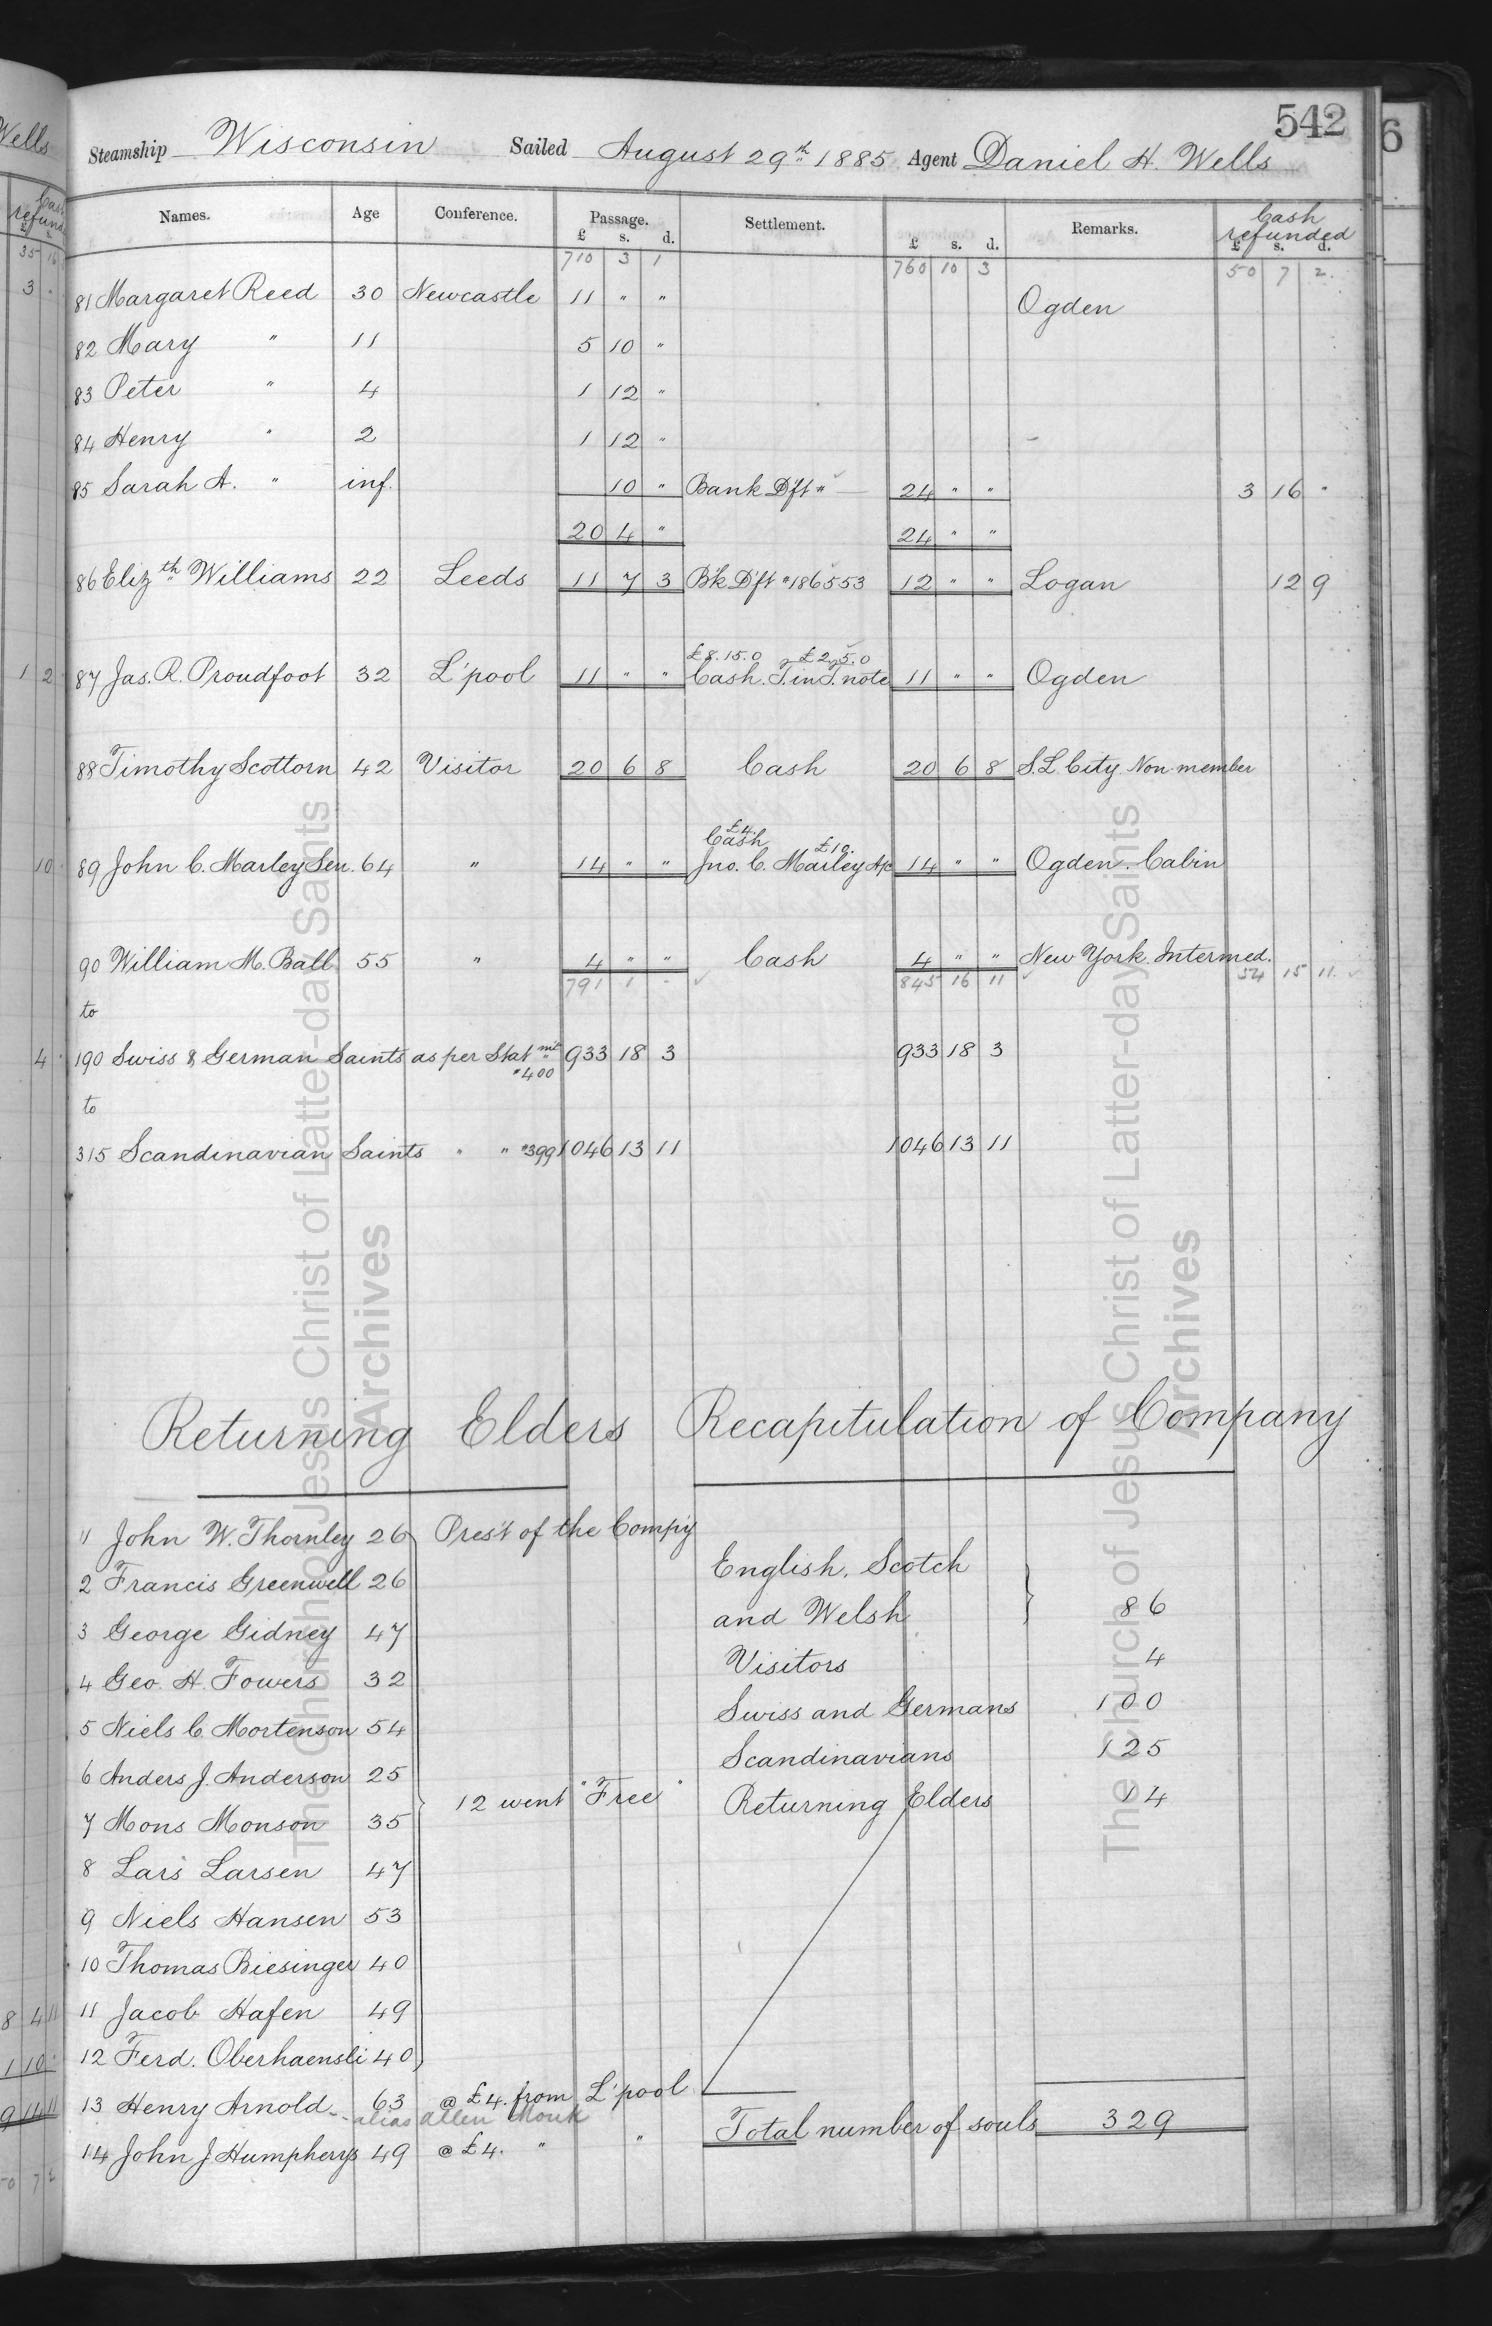 542
Steamship Wisconsin Sailed August 29th 1885 Agent Daniel H. Wells
Names. Age Conference. Passage. £ s. d. Settlement. £ s. d. Remarks. Cash refunded £ s. d.
710 3 1 760 10 3 50 7 2.
81 Margaret Reed 30 Newcastle 11 " " Ogden
82 Mary " 11 5 10 "
83 Peter " 4 1 12 "
84 Henry " 2 1 12 "
85 Sarah A. " inf. 10 " Bank Dft " 24 " " 3 16 "
20 4 " 24 " "
86 Elizth Williams 22 Leeds 11 7 3 B'k D'ft "186553 12 " " Logan 12 9
£8.15.0 £2.5.0
87 Jas. R. Proudfoot 32 L'pool 11 " " Cash. T.in T. note 11 " " Ogden
88 Timothy Scottorn 42 Visitor 20 6 8 Cash 20 6 8 S.L. City Non-member
£4.
Cash £10.
89 John C. Marley Sen. 64 " 14 " " Jno. C. Marley A/c 14 " " Ogden. Cabin
90 William M. Ball 55 " 4 " " Cash 4 " " New York. Intermed.
791 1 - 845 16 11 54 15 11.
to
190 Swiss & German Saints as per Statmt "400 933 18 3 933 18 3
to
315 Scandinavian Saints " " "399 1046 13 11 1046 13 11
Returning Elders Recapitulation of Company
1 John W. Thornley 26 Pres't of the Comp'y
2 Francis Greenwell 26
3 George Gidney 47
4 Geo. H. Fowers 32
5 Niels C. Mortenson 54
6 Anders J. Anderson 25
7 Mons Monson 35
8 Lars Larsen 47
9 Niels Hansen 53
10 Thomas Biesinger 40
11 Jacob Hafen 49
12 Ferd. Oberhaensli 40
12 went "Free"
13 Henry Arnold 63 @ £4. from L'pool
alias Allen Monk
14 John J Humpherys 49 @ £4. " "
English, Scotch
and Welsh 86
Visitors 4
Swiss and Germans 100
Scandinavians 125
Returning Elders 14
Total number of souls 329
The Church of Jesus Christ of Latter-day Saints
Archives
The Church of Jesus Christ of Latter-day Saints
Archives